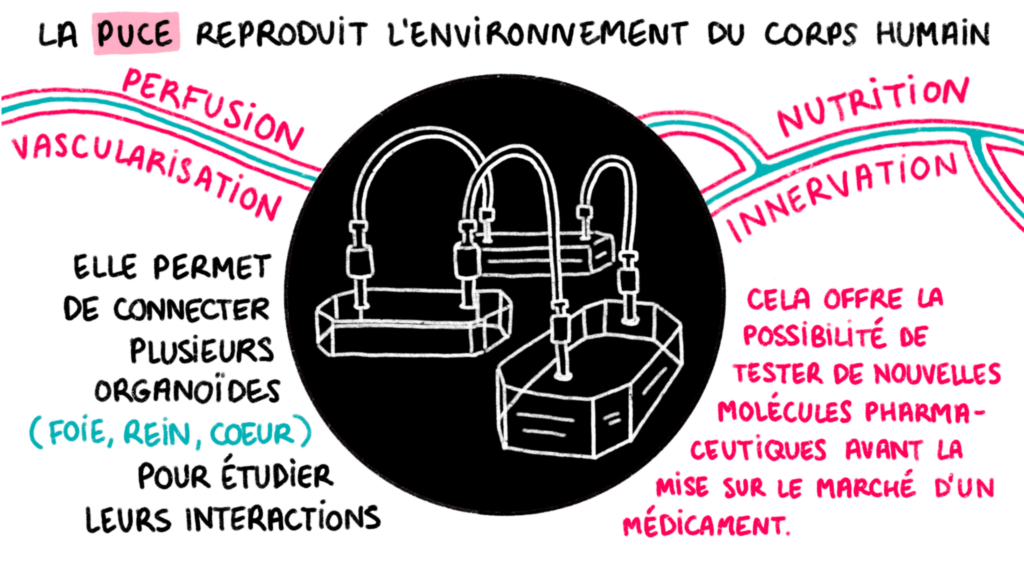 LA PUCE REPRODUIT L'ENVIRONNEMENT DU CORPS HUMAIN
PERFUSION
VASCULARISATION
NUTRITION
INNERVATION
ELLE PERMET
DE CONNECTER
PLUSIEURS
ORGANOÏDES
(FOIE, REIN, COEUR)
POUR ÉTUDIER
LEURS INTERACTIONS
CELA OFFRE LA
POSSIBILITÉ DE
TESTER DE NOUVELLES
MOLÉCULES PHARMA-
CEUTIQUES AVANT LA
MISE SUR LE MARCHÉ D'UN
MÉDICAMENT.